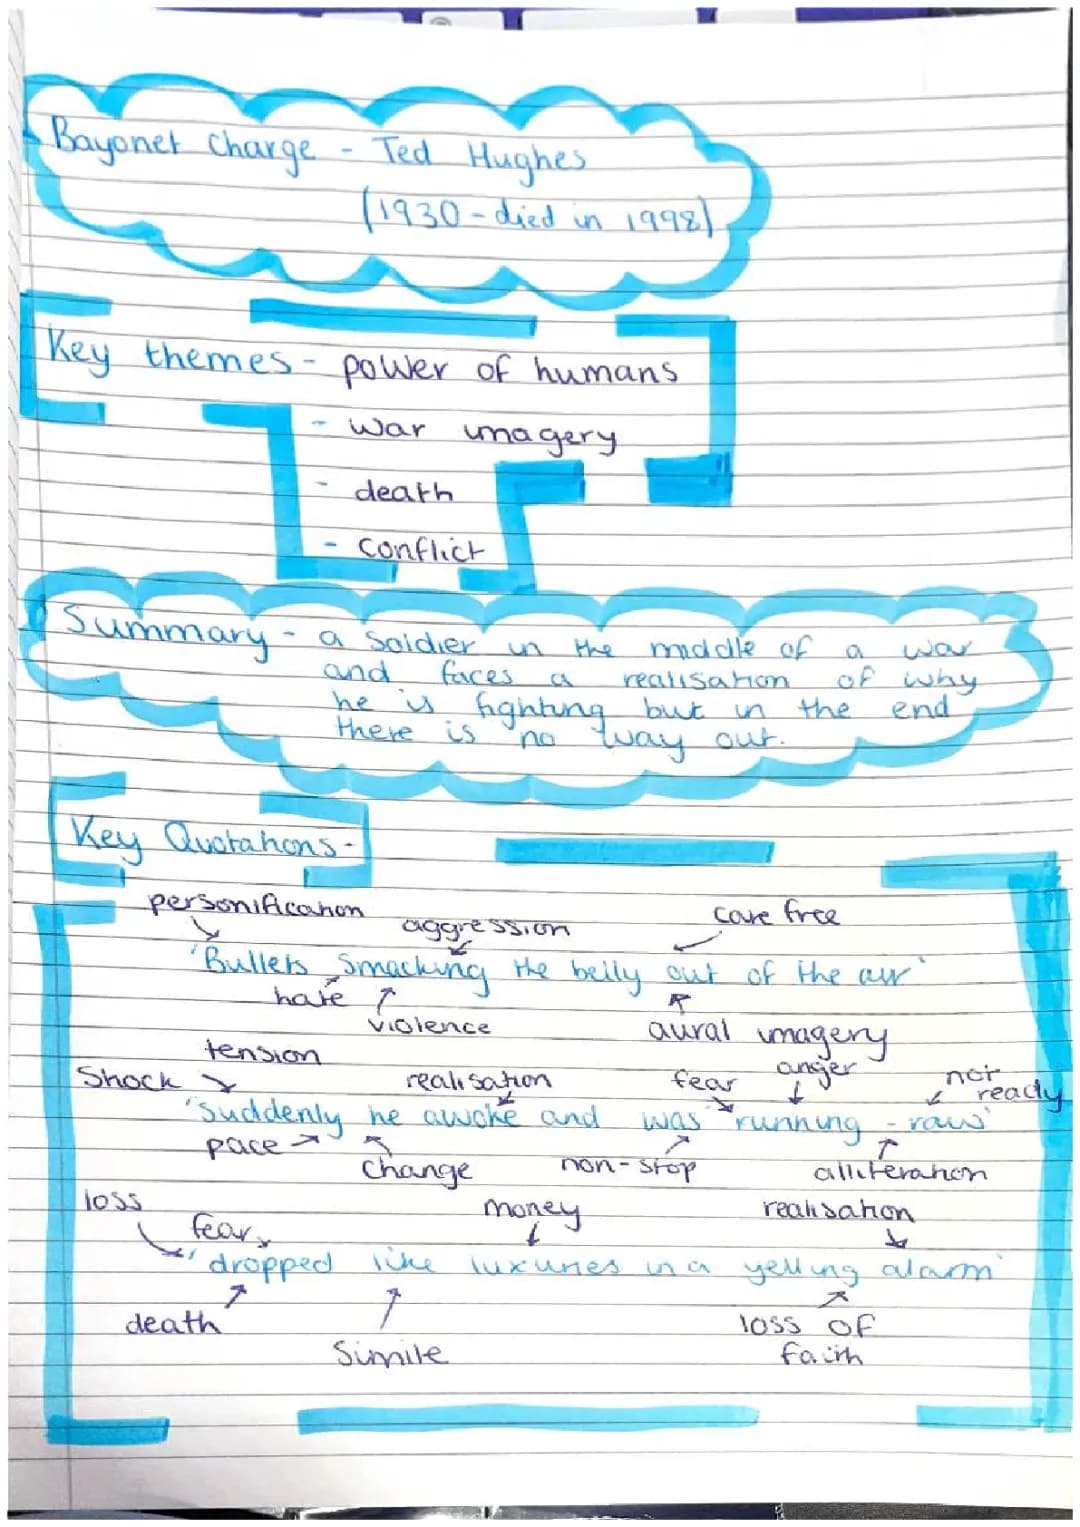 Bayonet Charge - Ted Hughes
(1930 - died in 1998)
Key themes - power of humans
- war imagery
- death
- conflict
Summary - a soldier in the middle of a war
and faces a realisation of why
he is fighting but in the end
there is no way out.
Key Quotations -
personification
aggression
care free
'Bullets smacking the belly out of the air'
hate
violence
aural imagery
tension
anger
Shock
realisation
fear
not ready
'Suddenly he awoke and was running - raw'
pace
change
non-stop
alliteration
loss
fear
money
realisation
'dropped like luxuries in a yelling alarm'
death
simile
loss of
faith